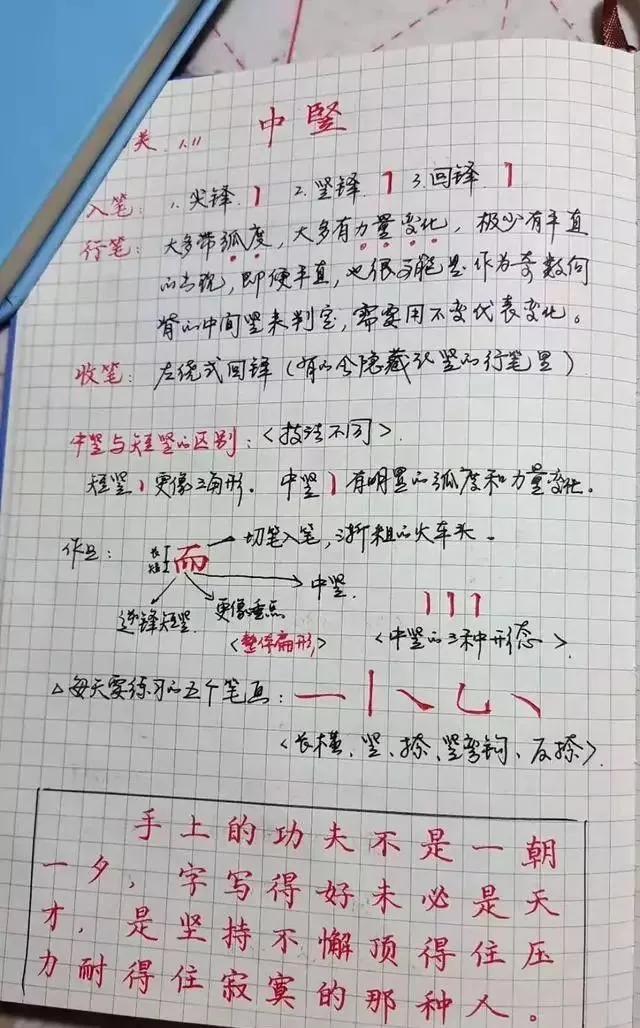 中竖
关 1.11
入笔：1.尖锋 2.竖锋 3.回锋
行笔：大多带弧度，大多有力量变化，极少有平直
的出现，即便平直，也很可能是作为奇数何
背的中间竖来判定，需要用不变代表变化。
收笔：左绕式回锋（有的会隐藏在竖的行笔里）
中竖与短竖的区别：<技法不同>
短竖更像三角形．中竖有明显的弧度和力量变化．
作业：长短 而 切笔入笔，渐粗的火车头．
中竖
逆锋短竖 更像垂点
<整体扁形> <中竖的3种形态>
△每天要练习的五个笔画：
<长横、竖、捺、竖弯钩、反捺>
手上的功夫不是一朝
一夕，字写得好未必是天
才，是坚持不懈顶得住压
力耐得住寂寞的那种人。